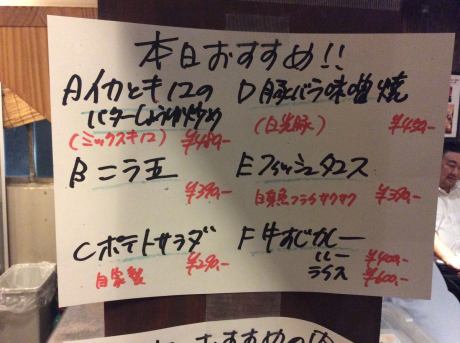 本日おすすめ!!
Aイカとキノコの
バターしょうゆ炒め
(ミックスキノコ) ¥480-
Bニラ玉
¥390-
Cポテトサラダ
自家製 ¥290-
D豚バラ味噌焼
(日光豚) ¥450-
Eフィッシュタコス
白身魚フライサクサク ¥390-
F牛すじカレー
ルー ¥400-
ライス ¥600-
おすすめの